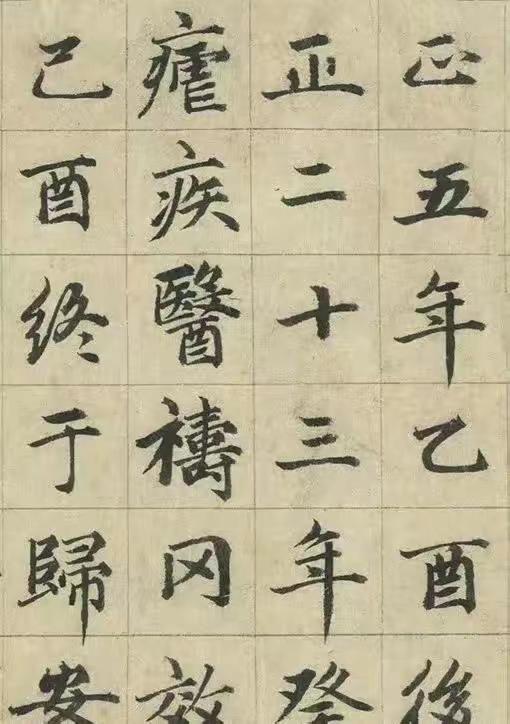 正五年乙酉後
正二十三年癸
瘧疾醫禱罔效
己酉終于歸安